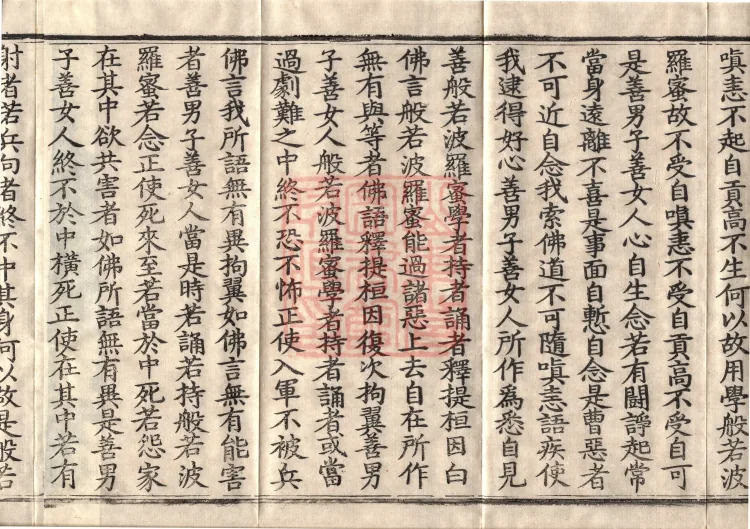 嗔恚不起自貢高不生何以故用學般若波
羅蜜故不受自嗔恚不受自貢高不受自可
是善男子善女人心自生念若有鬪諍起常
當身遠離不喜是事面自慙自念是曹惡者
不可近自念我索佛道不可隨嗔恚語疾使
我逮得好心善男子善女人所作爲悉自見
善般若波羅蜜學者持者誦者釋提桓因白
佛言般若波羅蜜能過諸惡上去自在所作
無有與等者佛語釋提桓因復次拘翼善男
子善女人般若波羅蜜學者持者誦者或當
過劇難之中終不恐不怖正使入軍不被兵
佛言我所語無有異拘翼如佛言無有能害
者善男子善女人當是時若誦若持般若波
羅蜜若念正使死來至若當於中死若怨家
在其中欲共害者如佛所語無有異是善男
子善女人終不於中橫死正使在其中若有
射者若兵向者終不中其身何以故是般若